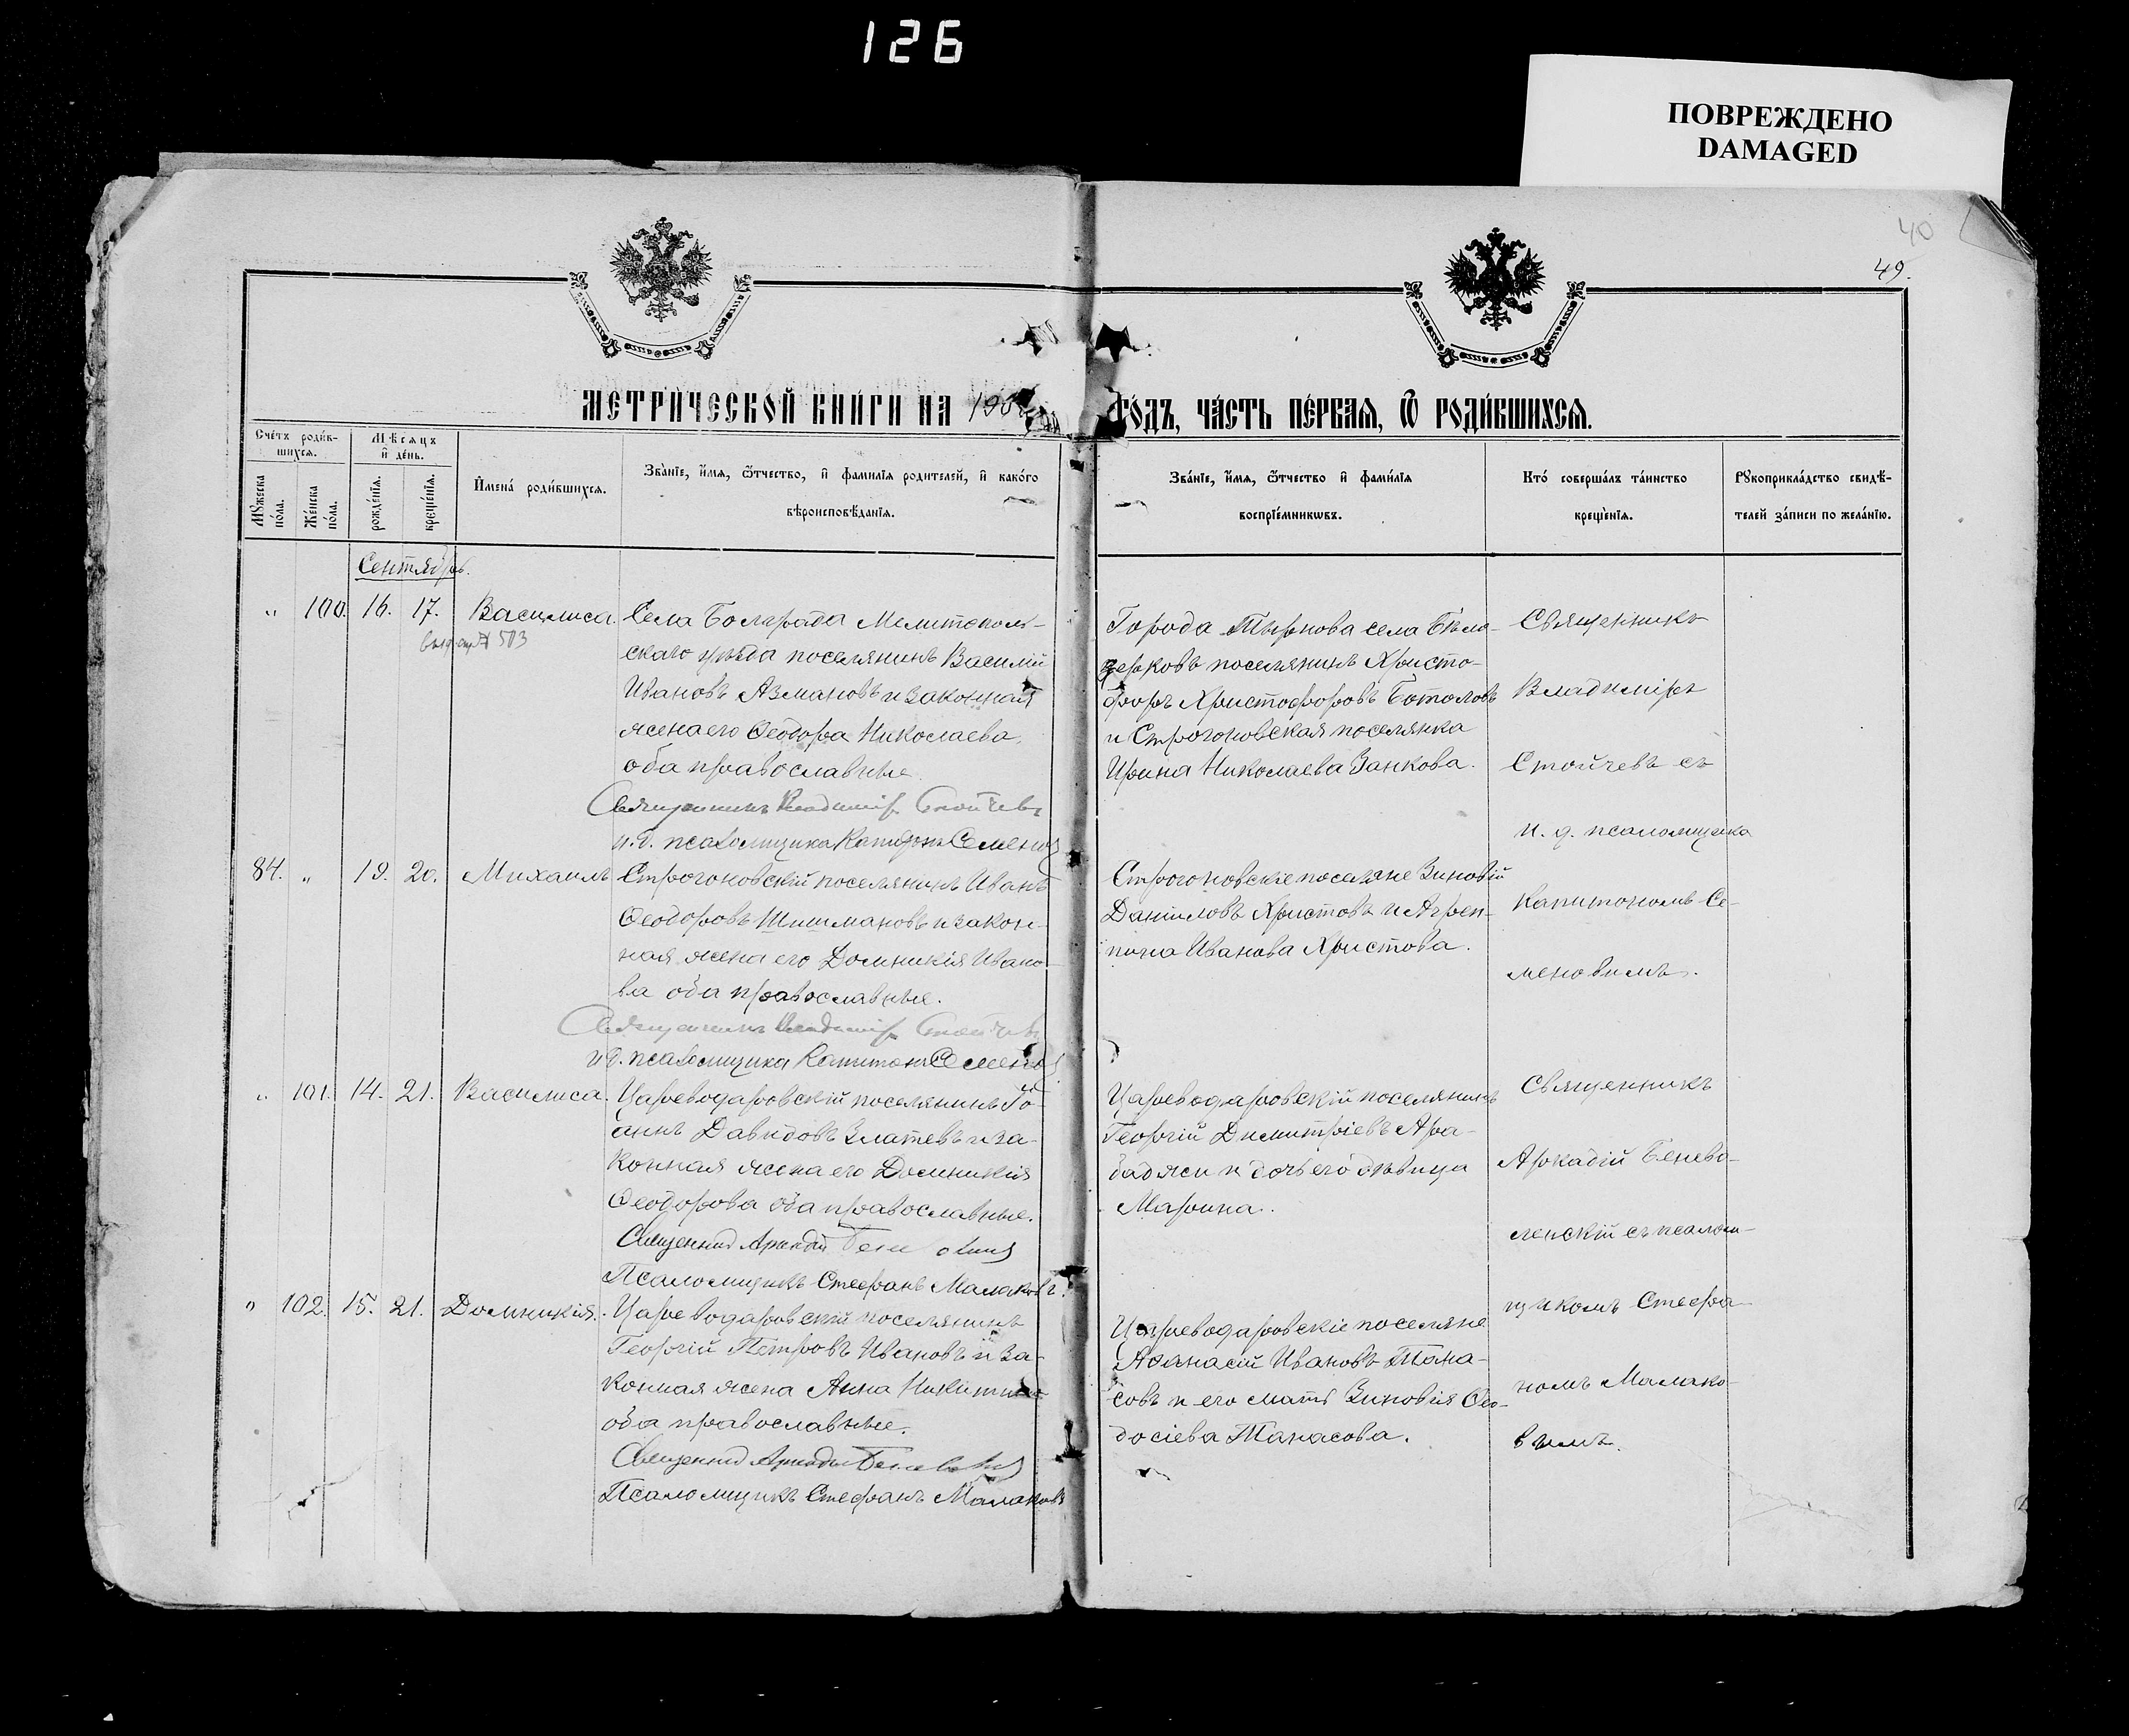 126
ПОВРЕЖДЕНО
DAMAGED
40
49.
МЕТРИЧЕСКОЙ КНИГИ НА 190
ГОДЪ, ЧАСТЬ ПЕРВАЯ, Ѿ РОДИВШИХСЯ.
Счетъ родив-
шихся.
Мужеска
пола.
Женска
пола.
Мѣсяцъ
и день.
рожденія.
крещенія.
Имена родившихся.
Званіе, имя, ѿтчество, и фамилія родителей, и какого
вѣроисповѣданія.
Званіе, имя, ѿтчество и фамилія
воспріемниковъ.
Кто совершалъ таинство
крещенія.
Рукоприкладство свидѣ-
телей записи по желанію.
Сентябрь.
" 100. 16. 17. Василиса.
503
Села Болграда Мелитополь-
скаго уѣзда поселянинъ Василій
Ивановъ Азмановъ и законная
жена его Ѳеодора Николаева,
оба православные.
Священникъ Владиміръ Стойчевъ
и. д. псаломщика Капитонъ Семеновъ
Города Тырнова села Бѣло-
церковъ поселянинъ Христо-
форъ Христофоровъ Ботоловъ
и Строгоновская поселянка
Ирина Николаева Занкова.
Священникъ
Владиміръ
Стойчевъ съ
и. д. псаломщика
Капитономъ Се-
меновымъ.
84. " 19. 20. Михаилъ
Строгоновскій поселянинъ Иванъ
Ѳеодоровъ Шишмановъ и закон-
ная жена его Домникія Ивано-
ва оба православные.
Священникъ Владиміръ Стойчевъ
и. д. псаломщика Капитонъ Семеновъ
Строгоновскіе поселяне Зиновій
Даніиловъ Христовъ и Агрип-
пина Иванова Христова.
" 101. 14. 21. Василиса.
Цареводаровскій поселянинъ Іо-
аннъ Давидовъ Златевъ и за-
конная жена его Домникія
Ѳеодорова оба православные.
Священникъ Аркадій
Псаломщикъ Стефанъ Малаковъ.
Цареводаровскій поселянинъ
Георгій Димитріевъ Ара-
баджи и дочь его дѣвица
Марина.
Священникъ
Аркадій Бенево-
ленскій съ псалом-
щикомъ Стефа-
номъ Малако-
вымъ.
" 102. 15. 21. Домникія.
Цареводаровскій поселянинъ
Георгій Петровъ Ивановъ и за-
конная жена Анна Никитина
оба православные.
Священникъ Аркадій
Псаломщикъ Стефанъ Малаковъ
Цареводаровскіе поселяне
Аѳанасій Ивановъ Тана-
совъ и его мать Зиновія Ѳео-
досіева Танасова.